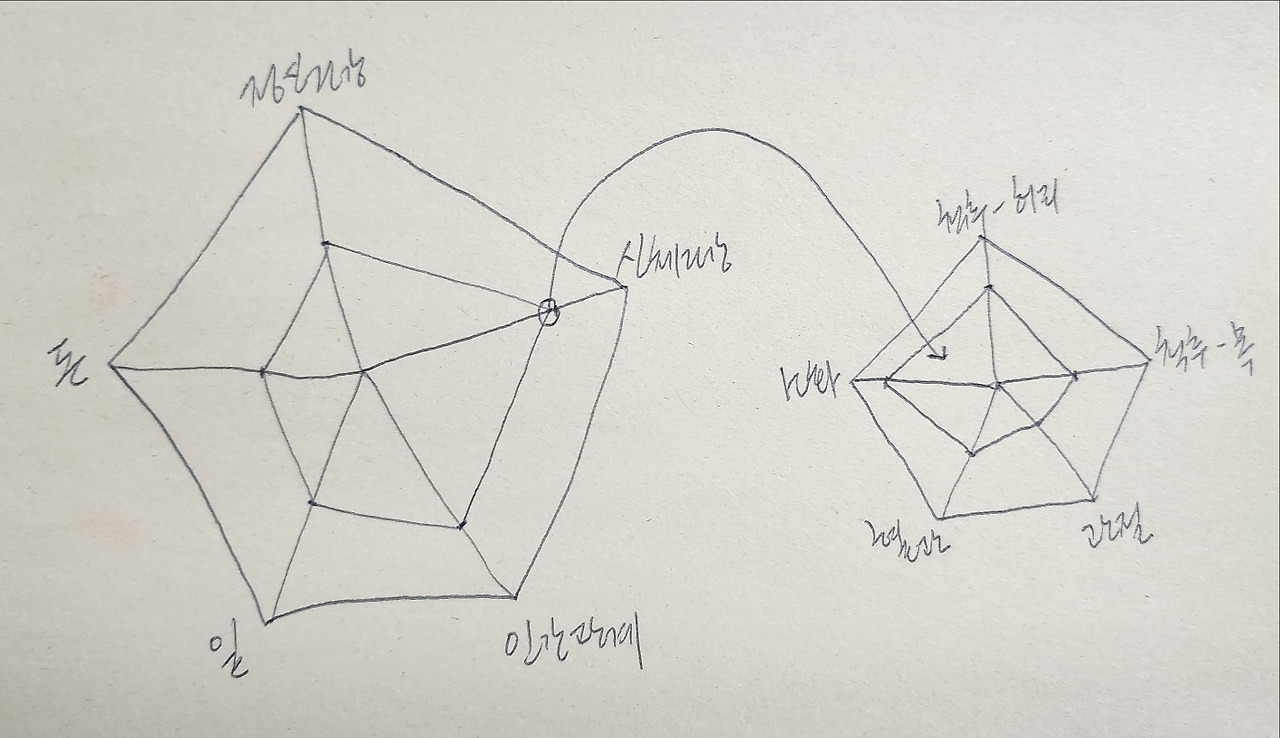 정신건강
신체건강
돈
일
인간관계
척추-허리
척추-목
혈관
관절